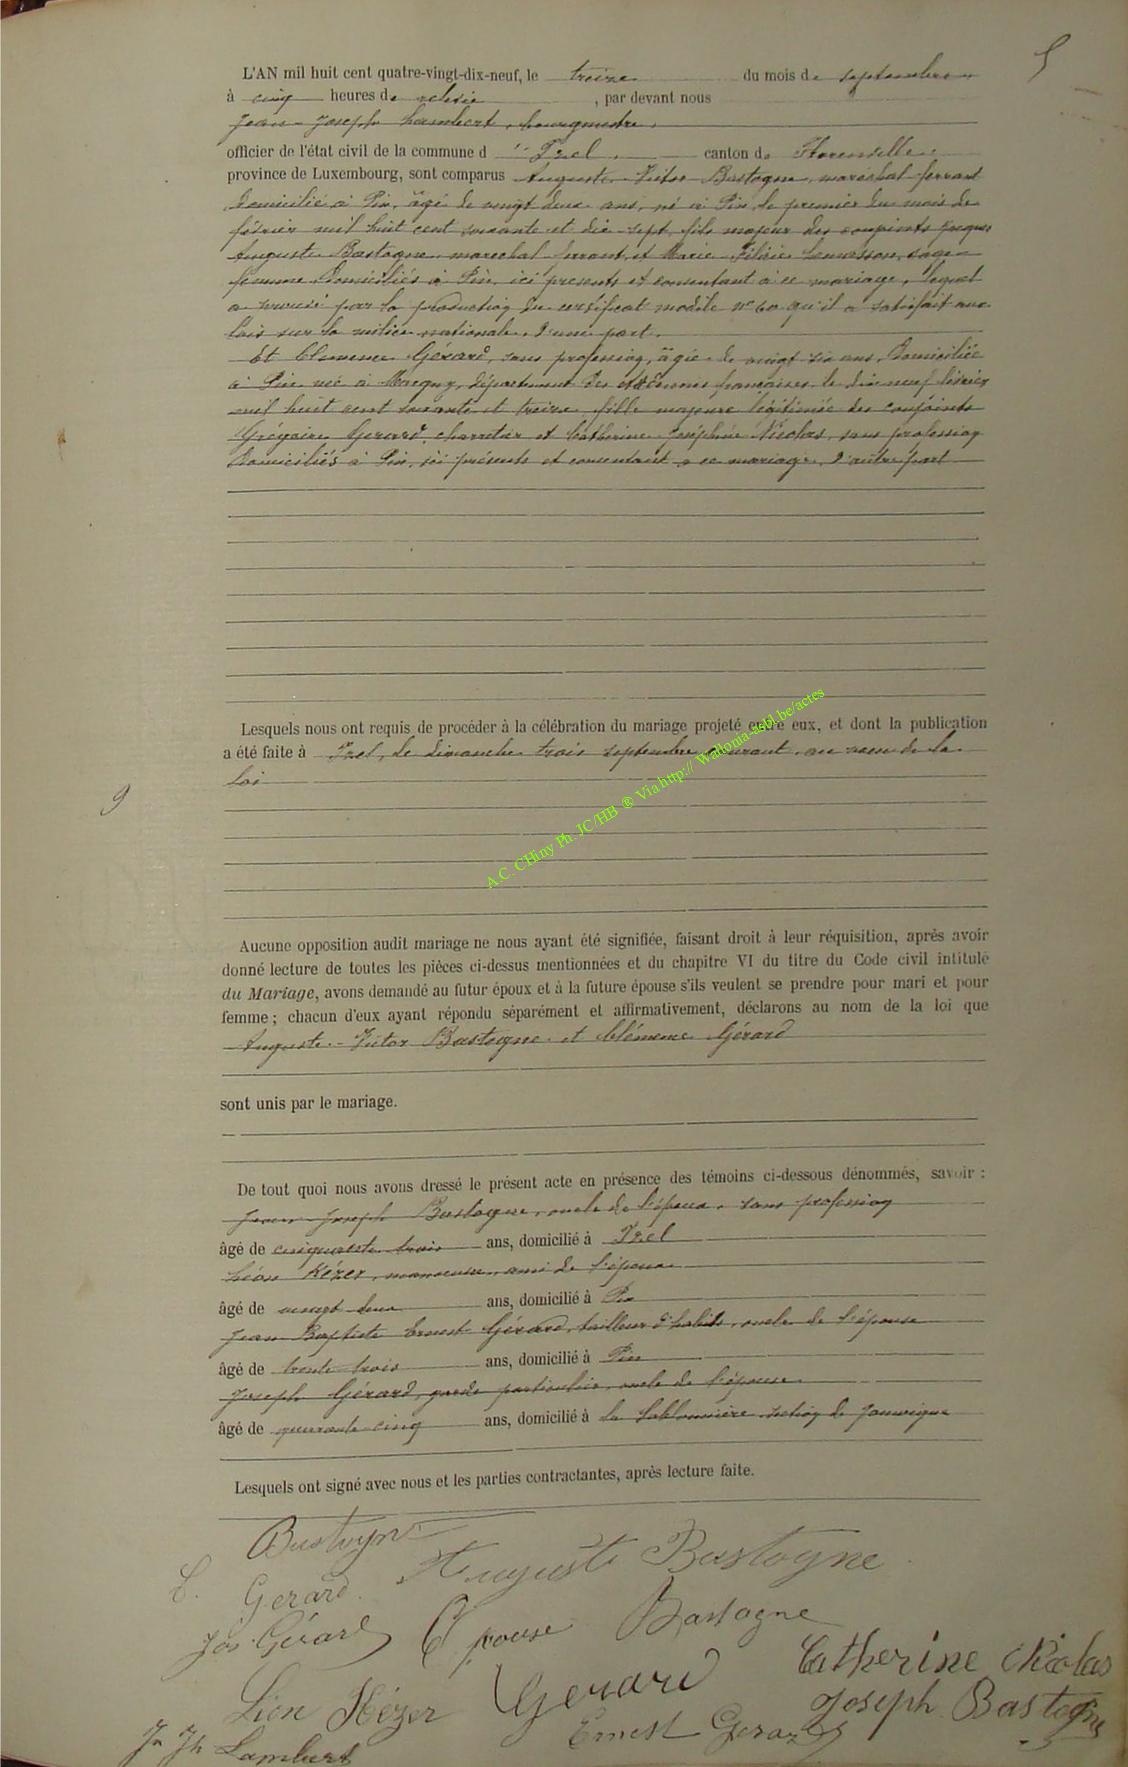 5
L'AN mil huit cent quatre-vingt-dix-neuf, le treize du mois de septembre
à cinq heures de relevée, par devant nous
Jean-Joseph Lambert, bourgmestre,
officier de l'état civil de la commune d'Izel, canton de Florenville,
province de Luxembourg, sont comparus Auguste-Victor Bastogne, maréchal ferrant
domicilié à Pin, âgé de vingt deux ans, né à Pin le premier du mois de
février mil huit cent soixante et dix-sept, fils majeur des conjoints Jacques
Auguste Bastogne, maréchal ferrant, et Marie-Félicie sage-
femme, domiciliés à Pin, ici présents et consentant à ce mariage, lequel
a prouvé par la production du certificat modèle n° 60 qu'il a satisfait aux
lois sur la milice nationale, d'une part.
Et Clémence Gérard, sans profession, âgée de vingt six ans, domiciliée
à Pin, née à Margny, département des Ardennes françaises, le dix neuf février
mil huit cent soixante et treize, fille majeure légitimée des conjoints
Grégoire Gérard, charretier et Catherine Joséphine Nicolas, sans profession
domiciliés à Pin, ici présents et consentant à ce mariage, d'autre part
Lesquels nous ont requis de procéder à la célébration du mariage projeté entre eux, et dont la publication
a été faite à Izel, le dimanche trois septembre courant, au vœu de la
loi
9
A.C. CHiny Ph. JC/HB ® Via http:// Wallonia-asbl.be/actes
Aucune opposition audit mariage ne nous ayant été signifiée, faisant droit à leur réquisition, après avoir
donné lecture de toutes les pièces ci-dessus mentionnées et du chapitre VI du titre du Code civil intitulé
du Mariage, avons demandé au futur époux et à la future épouse s'ils veulent se prendre pour mari et pour
femme ; chacun d'eux ayant répondu séparément et affirmativement, déclarons au nom de la loi que
Auguste-Victor Bastogne et Clémence Gérard
sont unis par le mariage.
De tout quoi nous avons dressé le présent acte en présence des témoins ci-dessous dénommés, savoir :
Jean-Joseph Bastogne, oncle de l'époux, sans profession
âgé de cinquante trois ans, domicilié à Izel
Léon Hézer, manœuvre, ami de l'époux
âgé de vingt deux ans, domicilié à Pin
Jean Baptiste Ernest Gérard, tailleur d'habits, oncle de l'épouse
âgé de trente trois ans, domicilié à Pin
Joseph Gérard, garde particulier, oncle de l'épouse
âgé de quarante cinq ans, domicilié à la Sablonnière section de Jamoigne
Lesquels ont signé avec nous et les parties contractantes, après lecture faite.
Bastogne
C. Gerard Auguste Bastogne
Jos Gérard Epouse Bastogne
Catherine Nicolas
Léon Hézer Gerard Joseph Bastogne
Ernest Gerard
Jn Jh Lambert